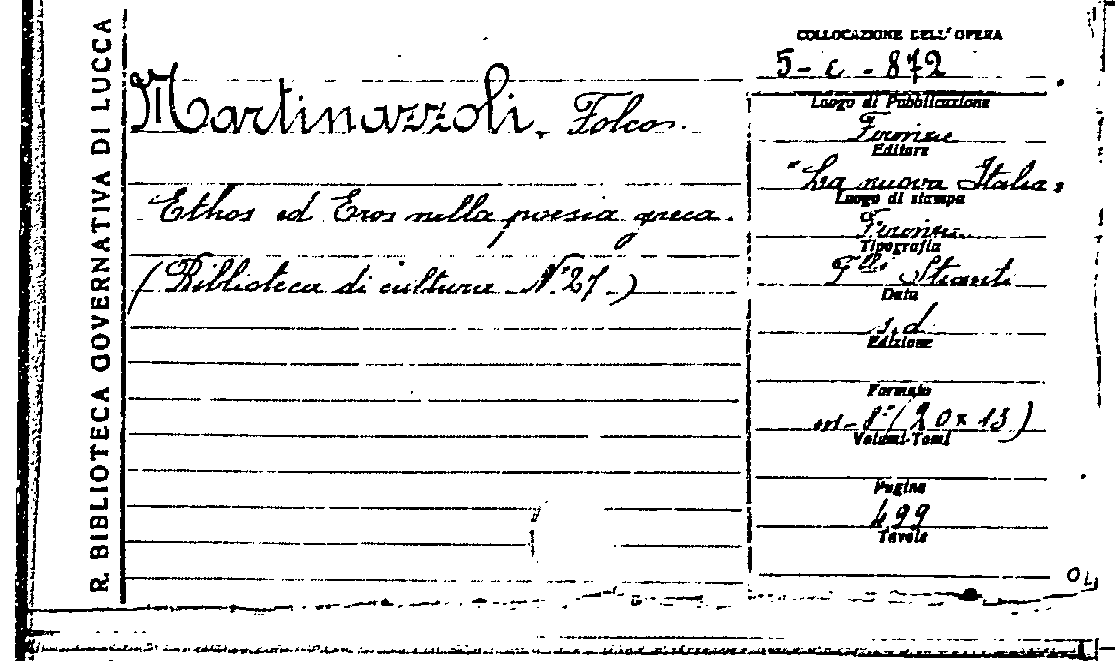 R. BIBLIOTECA GOVERNATIVA DI LUCCA
Martinazzoli, Folco.
Ethos ed Eros nella poesia greca.
(Biblioteca di cultura N.° 27.)
COLLOCAZIONE DELL'OPERA
5 - c - 872
Luogo di Pubblicazione
Firenze
Editore
"La nuova Italia"
Luogo di stampa
Firenze
Tipografia
F.lli Stianti
Data
s.d.
Edizione
Formato
in-8° (20 x 13)
Volumi-Tomi
Pagine
499
Tavole